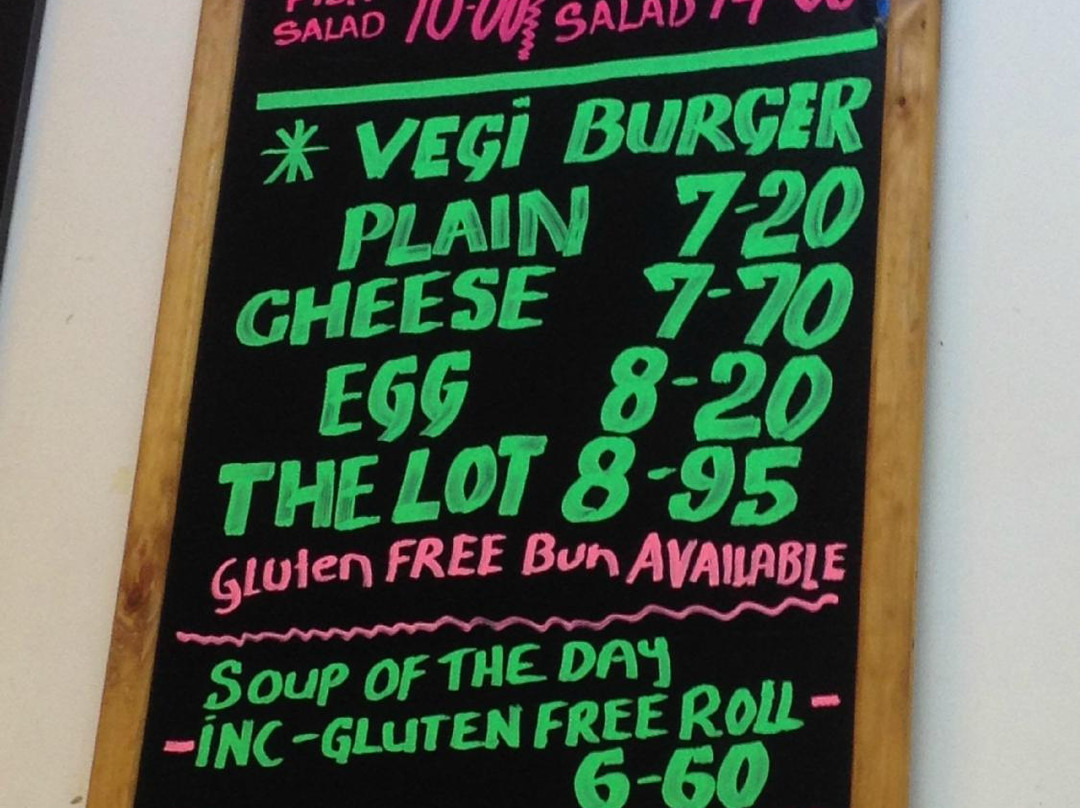 SALAD 10-00 SALAD
* VEGI BURGER
PLAIN 7-20
CHEESE 7-70
EGG 8-20
THE LOT 8-95
Gluten FREE Bun AVAILABLE
SOUP OF THE DAY
-INC-GLUTEN FREE ROLL-
6-60